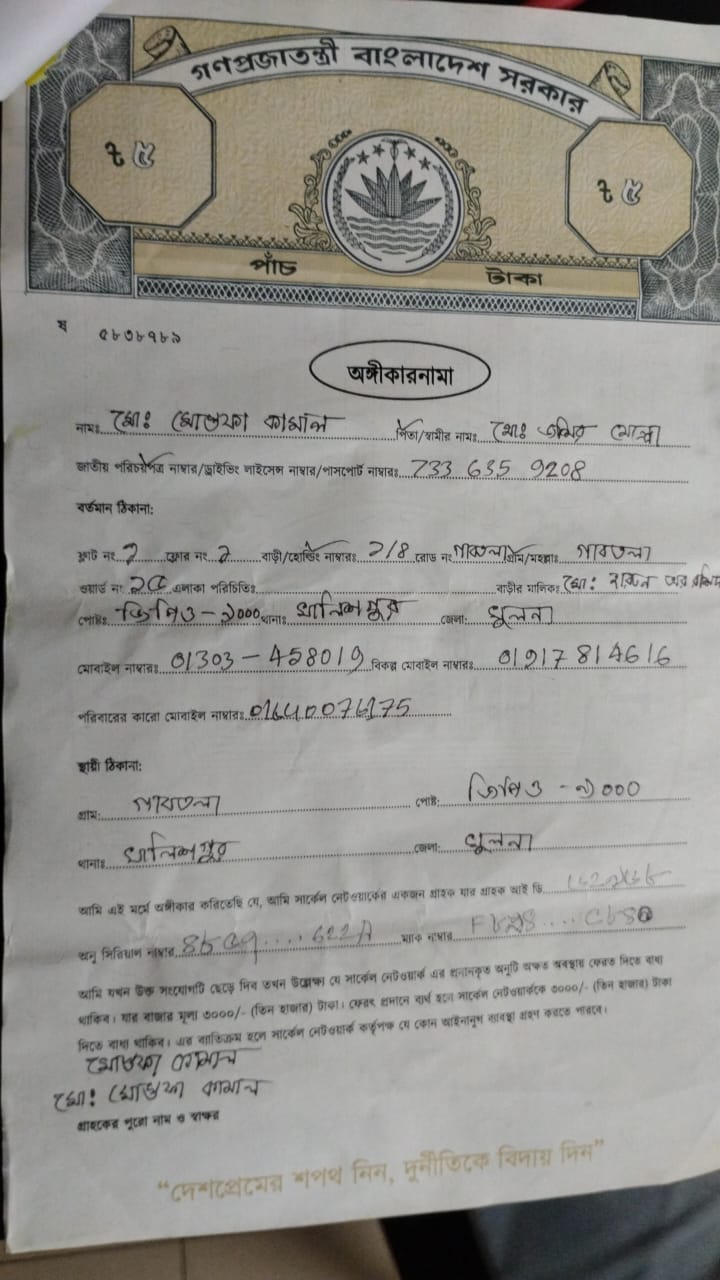 গণপ্রজাতন্ত্রী বাংলাদেশ সরকার
৳ ৫
৳ ৫
পাঁচ টাকা
ষ ৫৮৩৪৭৮৯
অঙ্গীকারনামা
নামঃ মোঃ মোস্তফা কামাল পিতা/স্বামীর নামঃ মোঃ জমির মোল্লা
জাতীয় পরিচয়পত্র নাম্বার/ড্রাইভিং লাইসেন্স নাম্বার/পাসপোর্ট নাম্বারঃ 733 635 9208
বর্তমান ঠিকানা:
ফ্লাট নং ২ ফ্লোর নং ২ বাড়ী/হোল্ডিং নাম্বারঃ ২/৪ রোড নং গাবতলা গ্রাম/মহল্লাঃ গাবতলা
ওয়ার্ড নং ১৫ এলাকা পরিচিতিঃ বাড়ীর মালিকঃ মোঃ
পোষ্টঃ জিপিও - ৯০০০ থানাঃ খালিশপুর জেলা: খুলনা
মোবাইল নাম্বারঃ 01303-458019 বিকল্প মোবাইল নাম্বারঃ 01917814616
পরিবারের কারো মোবাইল নাম্বারঃ
স্থায়ী ঠিকানা:
গ্রাম: গাবতলা পোষ্ট: জিপিও - ৯০০০
থানাঃ খালিশপুর জেলা: খুলনা
আমি এই মর্মে অঙ্গীকার করিতেছি যে, আমি সার্কেল নেটওয়ার্কের একজন গ্রাহক যার গ্রাহক আই ডি
অনু সিরিয়াল নাম্বার ম্যাক নাম্বার
আমি যখন উক্ত সংযোগটি ছেড়ে দিব তখন উল্লেক্ষ্য যে সার্কেল নেটওয়ার্ক এর প্রদানকৃত অনুটি অক্ষত অবস্থায় ফেরত দিতে বাধ্য
থাকিব। যার বাজার মূল্য ৩০০০/- (তিন হাজার) টাকা। ফেরৎ প্রদানে ব্যর্থ হলে সার্কেল নেটওয়ার্ককে ৩০০০/- (তিন হাজার) টাকা
দিতে বাধ্য থাকিব। এর ব্যতিক্রম হলে সার্কেল নেটওয়ার্ক কর্তৃপক্ষ যে কোন আইনানুগ ব্যবস্থা গ্রহণ করতে পারবে।
মোস্তফা কামাল
মোঃ মোস্তফা কামাল
গ্রাহকের পুরো নাম ও স্বাক্ষর
“দেশপ্রেমের শপথ নিন, দুর্নীতিকে বিদায় দিন”